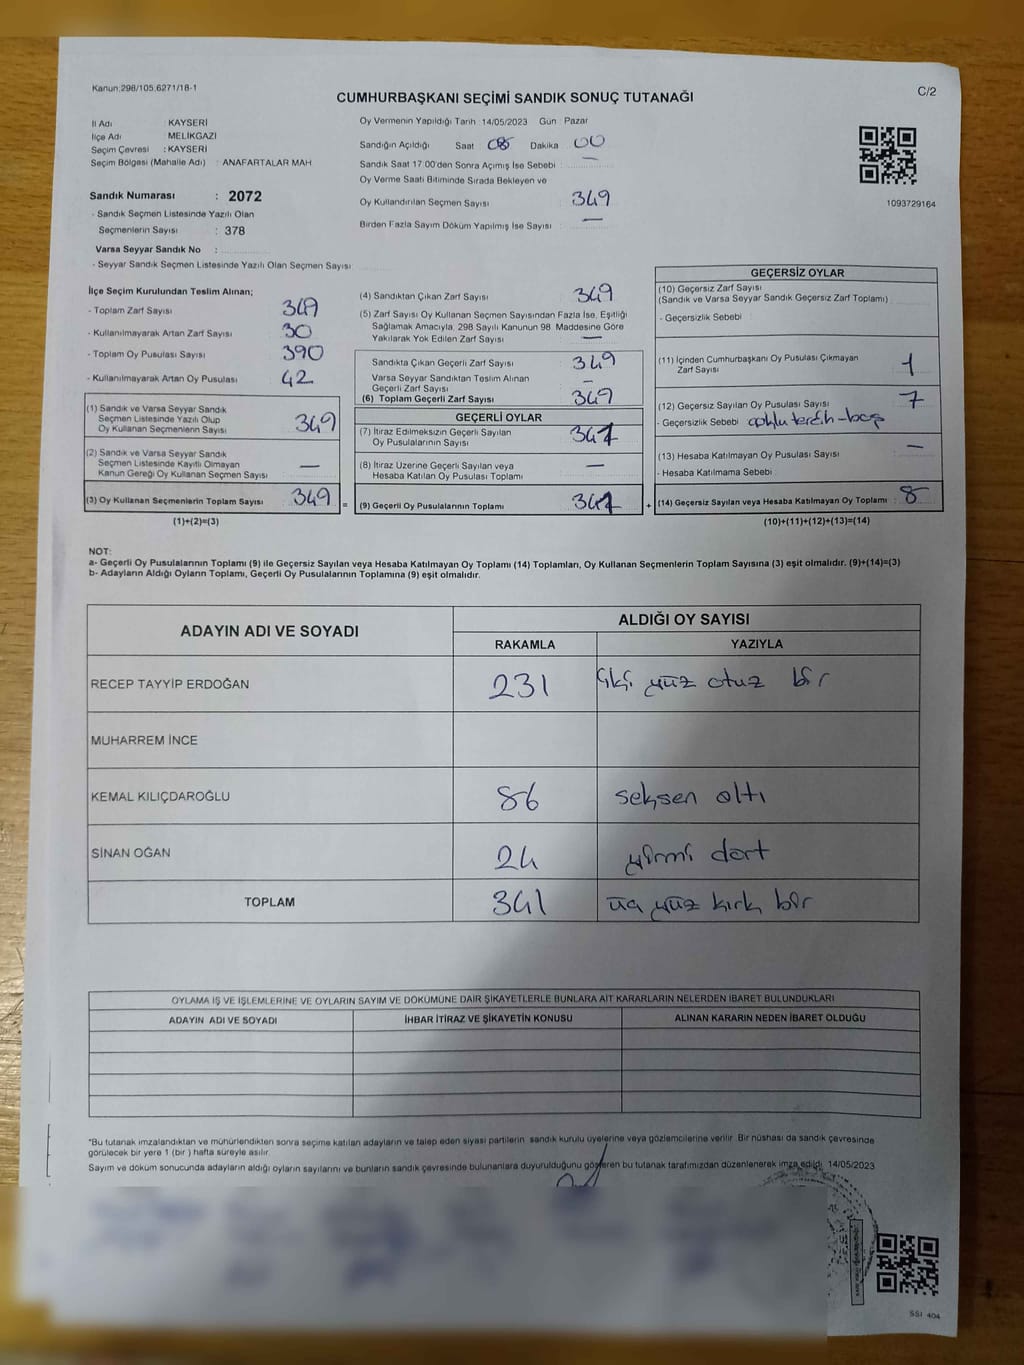 Kanun:298/105,6271/18-1
C/2
CUMHURBAŞKANI SEÇİMİ SANDIK SONUÇ TUTANAĞI
İl Adı : KAYSERİ
İlçe Adı : MELİKGAZİ
Seçim Çevresi : KAYSERİ
Seçim Bölgesi (Mahalle Adı) : ANAFARTALAR MAH
Sandık Numarası : 2072
- Sandık Seçmen Listesinde Yazılı Olan
Seçmenlerin Sayısı : 378
Varsa Seyyar Sandık No :
- Seyyar Sandık Seçmen Listesinde Yazılı Olan Seçmen Sayısı:
Oy Vermenin Yapıldığı Tarih :14/05/2023 Gün : Pazar
Sandığın Açıldığı Saat : 08 Dakika : 00
Sandık Saat 17:00'den Sonra Açımış İse Sebebi : —
Oy Verme Saati Bitiminde Sırada Bekleyen ve
Oy Kullandırılan Seçmen Sayısı : 349
Birden Fazla Sayım Döküm Yapılmış İse Sayısı : —
1093729164
İlçe Seçim Kurulundan Teslim Alınan;
- Toplam Zarf Sayısı :
- Kullanılmayarak Artan Zarf Sayısı : 30
- Toplam Oy Pusulası Sayısı : 390
- Kullanılmayarak Artan Oy Pusulası : 42
(1) Sandık ve Varsa Seyyar Sandık
Seçmen Listesinde Yazılı Olup
Oy Kullanan Seçmenlerin Sayısı : 349
(2) Sandık ve Varsa Seyyar Sandık
Seçmen Listesinde Kayıtlı Olmayan
Kanun Gereği Oy Kullanan Seçmen Sayısı : —
(3) Oy Kullanan Seçmenlerin Toplam Sayısı : 349
(1)+(2)=(3)
(4) Sandıktan Çıkan Zarf Sayısı : 349
(5) Zarf Sayısı Oy Kullanan Seçmen Sayısından Fazla İse, Eşitliği
Sağlamak Amacıyla, 298 Sayılı Kanunun 98. Maddesine Göre
Yakılarak Yok Edilen Zarf Sayısı : —
Sandıkta Çıkan Geçerli Zarf Sayısı : 349
Varsa Seyyar Sandıktan Teslim Alınan
Geçerli Zarf Sayısı : —
(6) Toplam Geçerli Zarf Sayısı : 349
GEÇERLİ OYLAR
(7) İtiraz Edilmeksizin Geçerli Sayılan
Oy Pusulalarının Sayısı :
(8) İtiraz Üzerine Geçerli Sayılan veya
Hesaba Katılan Oy Pusulası Toplamı : —
= (9) Geçerli Oy Pusulalarının Toplamı :
GEÇERSİZ OYLAR
(10) Geçersiz Zarf Sayısı
(Sandık ve Varsa Seyyar Sandık Geçersiz Zarf Toplamı) :
- Geçersizlik Sebebi :
(11) İçinden Cumhurbaşkanı Oy Pusulası Çıkmayan
Zarf Sayısı : 1
(12) Geçersiz Sayılan Oy Pusulası Sayısı : 7
- Geçersizlik Sebebi : çoklu tercih-boş
(13) Hesaba Katılmayan Oy Pusulası Sayısı : —
- Hesaba Katılmama Sebebi :
+ (14) Geçersiz Sayılan veya Hesaba Katılmayan Oy Toplamı : 8
(10)+(11)+(12)+(13)=(14)
NOT:
a- Geçerli Oy Pusulalarının Toplamı (9) ile Geçersiz Sayılan veya Hesaba Katılmayan Oy Toplamı (14) Toplamları, Oy Kullanan Seçmenlerin Toplam Sayısına (3) eşit olmalıdır. (9)+(14)=(3)
b- Adayların Aldığı Oyların Toplamı, Geçerli Oy Pusulalarının Toplamına (9) eşit olmalıdır.
ADAYIN ADI VE SOYADI ALDIĞI OY SAYISI
RAKAMLA YAZIYLA
RECEP TAYYİP ERDOĞAN 231 iki yüz otuz bir
MUHARREM İNCE
KEMAL KILIÇDAROĞLU 86 seksen altı
SİNAN OĞAN 24 yirmi dört
TOPLAM 341 üç yüz kırk bir
OYLAMA İŞ VE İŞLEMLERİNE VE OYLARIN SAYIM VE DÖKÜMÜNE DAİR ŞİKAYETLERLE BUNLARA AİT KARARLARIN NELERDEN İBARET BULUNDUKLARI
ADAYIN ADI VE SOYADI İHBAR İTİRAZ VE ŞİKAYETİN KONUSU ALINAN KARARIN NEDEN İBARET OLDUĞU
*Bu tutanak imzalandıktan ve mühürlendikten sonra seçime katılan adayların ve talep eden siyasi partilerin sandık kurulu üyelerine veya gözlemcilerine verilir. Bir nüshası da sandık çevresinde
görülecek bir yere 1 (bir ) hafta süreyle asılır.
Sayım ve döküm sonucunda adayların aldığı oyların sayılarını ve bunların sandık çevresinde bulunanlara duyurulduğunu gösteren bu tutanak tarafımızdan düzenlenerek imza edildi. 14/05/2023
SSI 404